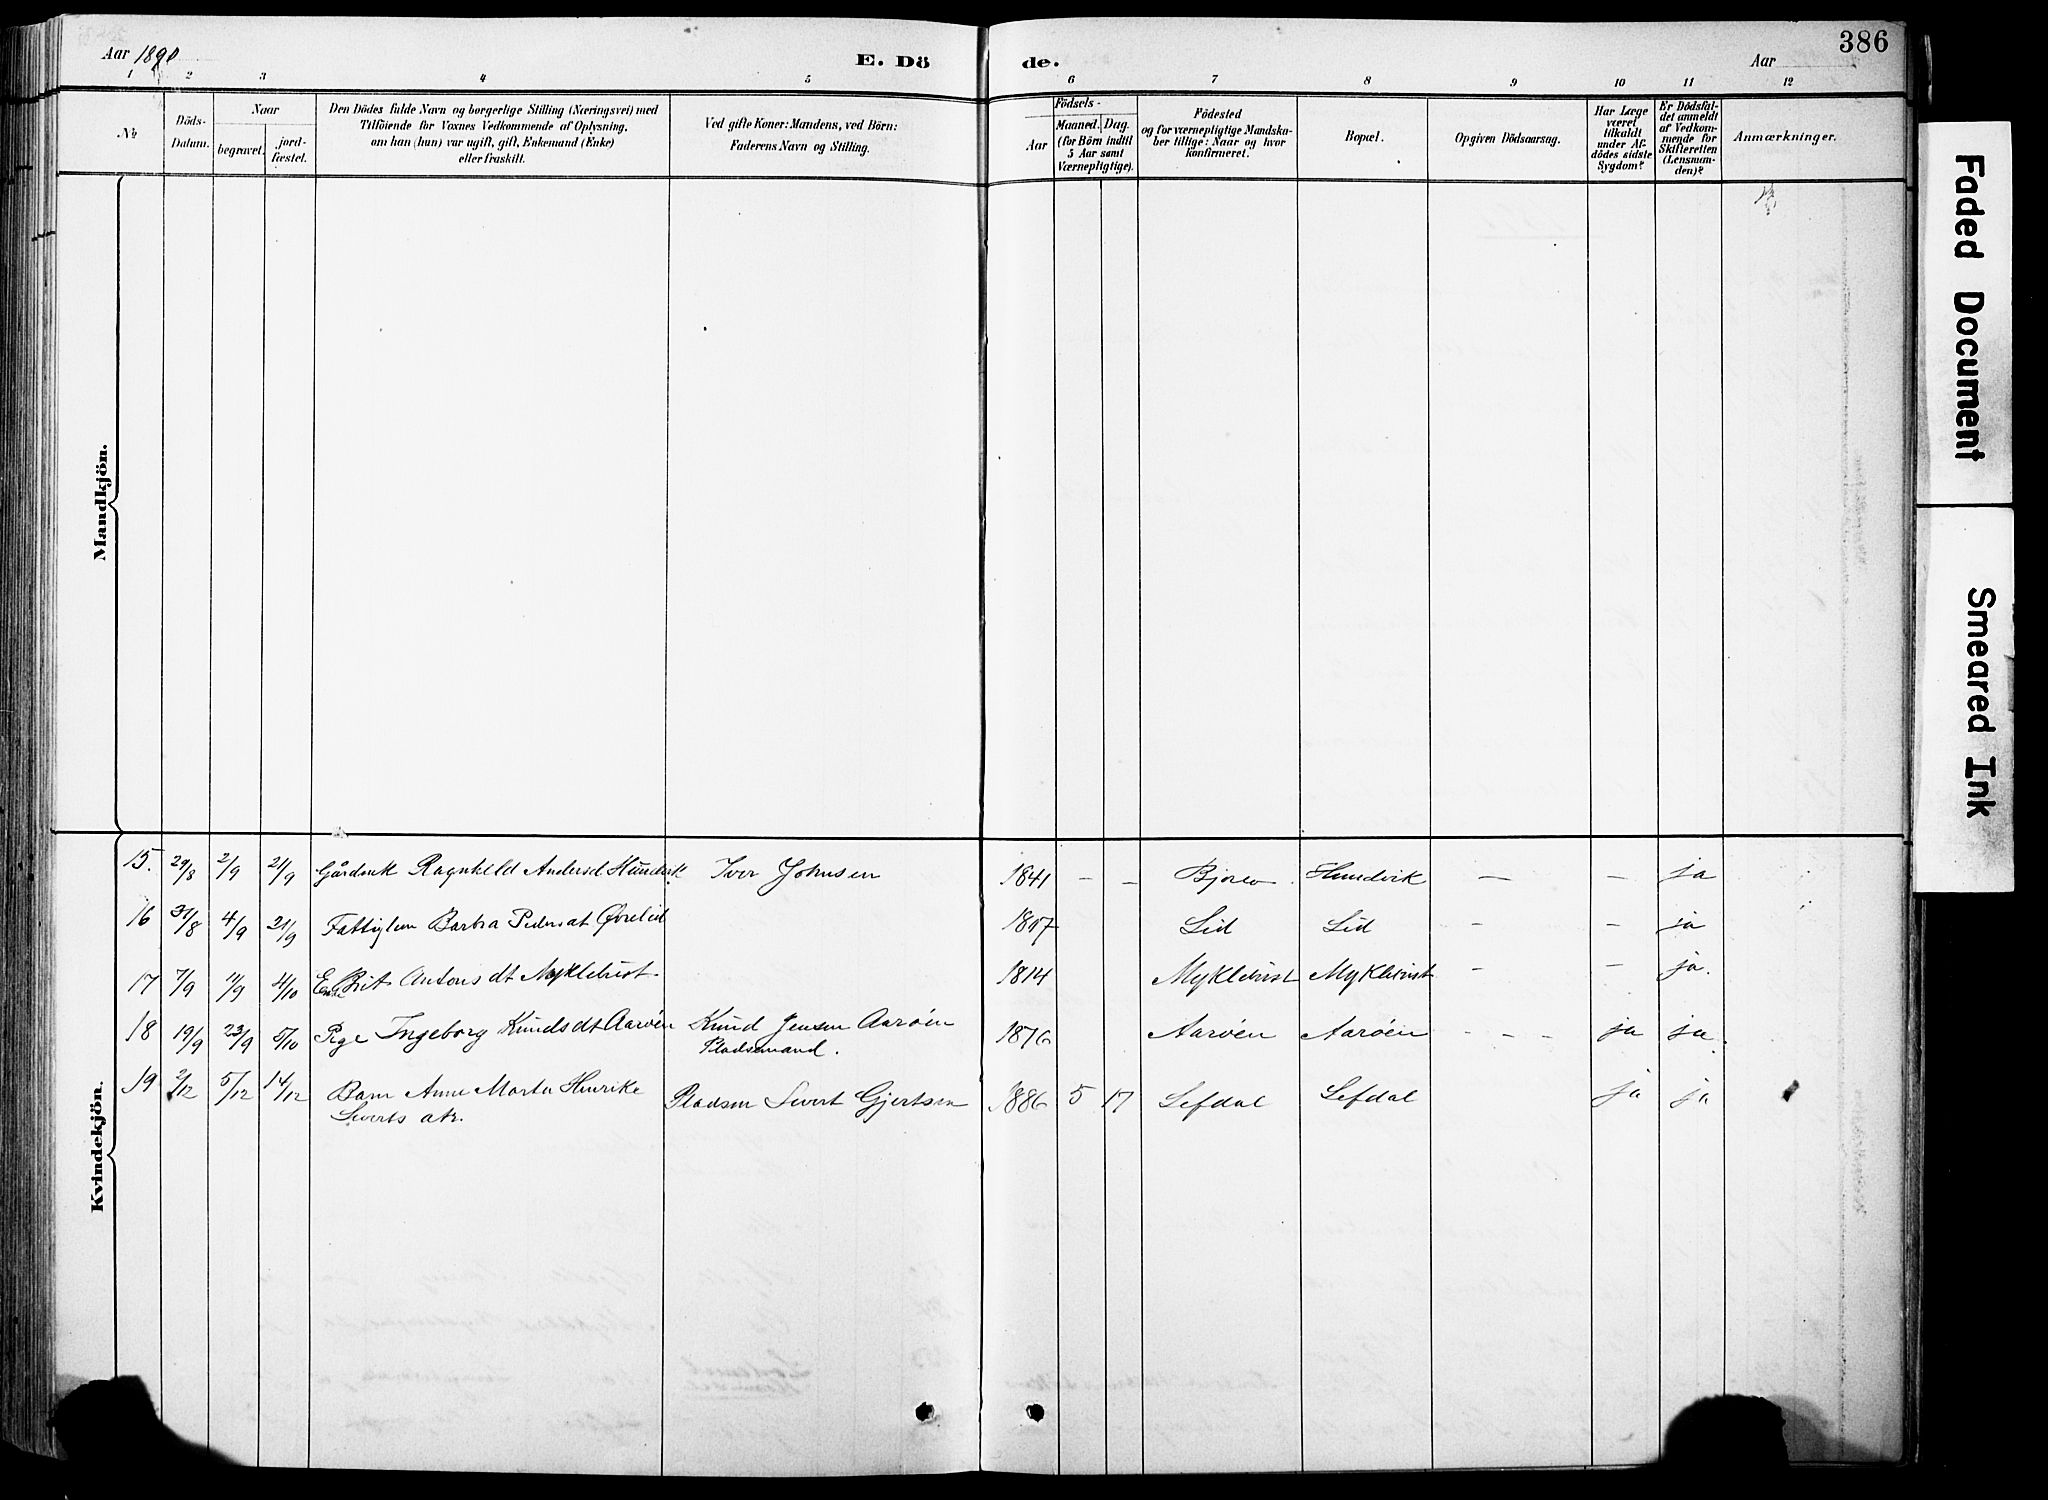 Aar 1890
E. Dö
de.
Aar
386
1 2 3 4 5 6 7 8 9 10 11 12
No
Döds-Datum.
Naar
begravet.
jord-fæstet.
Den Dödes fulde Navn og borgerlige Stilling (Næringsvei) med
Tilföiende for Voxnes Vedkommende af Oplysning,
om han (hun) var ugift, gift, Enkemand (Enke)
eller fraskilt.
Ved gifte Koner: Mandens, ved Börn:
Faderens Navn og Stilling.
Födsels-
Aar
Maaned. Dag.
(for Börn indtil
5 Aar samt
Værnepligtige).
Födested
og for værnepligtige Mandska-
ber tillige: Naar og hvor
konfirmeret.
Bopæl.
Opgiven Dödsaarsag.
Har Læge
været
tilkaldt
under Af-
dödes sidste
Sygdom?
Er Dödsfal-
det anmeldt
af Vedkom-
mende for
Skifteretten
(Lensman-
den)?
Anmærkninger.
Mandkjön.
Kvindekjön.
15. 29/8 2/9 21/9 Gårdmk Ragnhild Andersd Hundvik Iver Johnsen 1841 – – Bjorlo Hundvik — – ja
16 31/8 4/9 21/9 Fattiglem Barbra Pedersdt Øvrelid Lid Lid – – ja
17 7/9 11/9 4/10 Enke Brit Antonsdt Myklebust 1814 Myklebust Myklebust – – ja.
18 19/9 23/9 5/10 Pige Ingeborg Knudsdt Aarøen Knud Jensen Aarøen 1876 Aarøen Aarøen – – – ja ja.
Pladsmand.
19 2/12 5/12 14/12 Barn Anne Marta Henrike Pladsm Sivert Gjertsen 1886 5 17 Lefdal Lefdal ja ja
Siverts dtr.
Faded Document
Smeared Ink